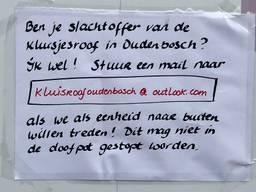 Ben je slachtoffer van de
kluisjesroof in Oudenbosch?
Ik wel! Stuur een mail naar
kluisroofoudenbosch@outlook.com
als we als eenheid naar buiten
willen treden! Dit mag niet in
de doofpot gestopt worden.